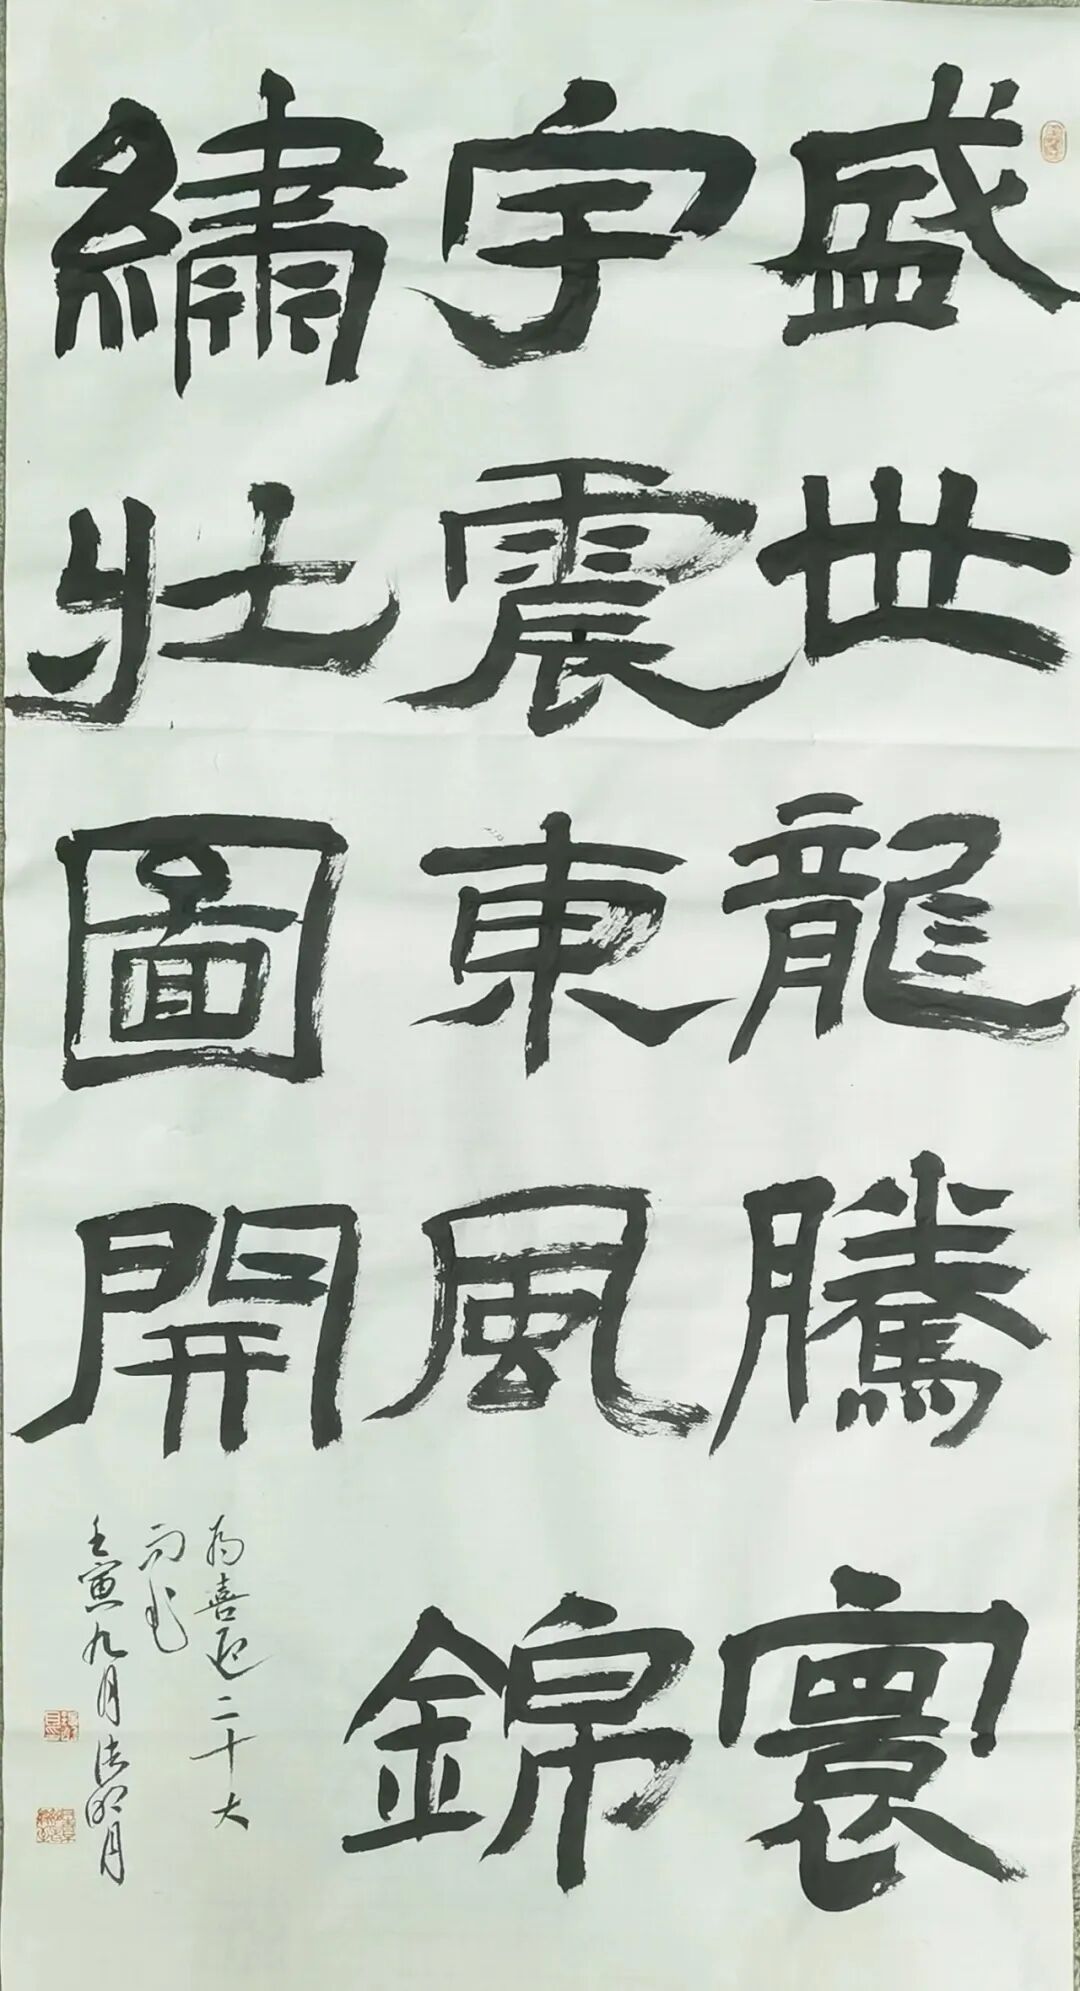 盛世龍騰寰
宇震東風錦
繡壯圖開
為喜迎二十大
而書
壬寅九月 明月